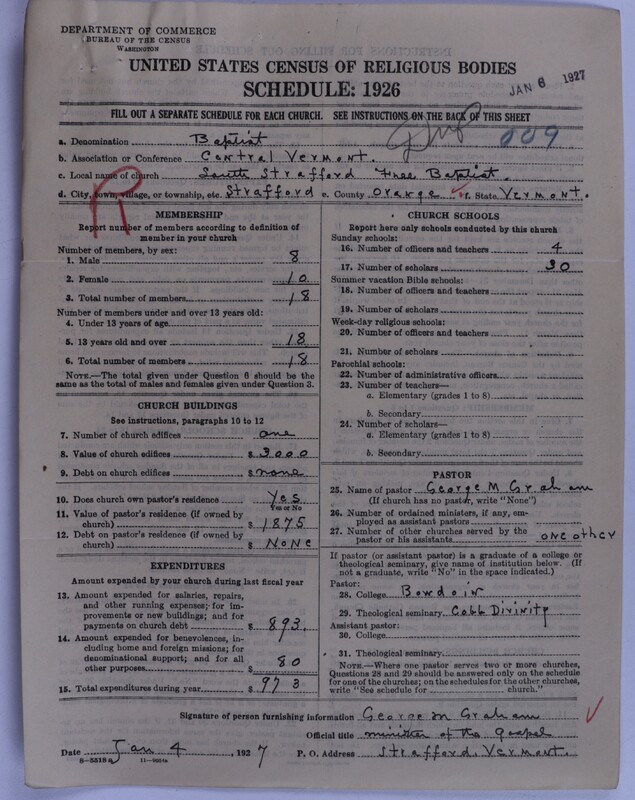 DEPARTMENT OF COMMERCE
BUREAU OF THE CENSUS
WASHINGTON
UNITED STATES CENSUS OF RELIGIOUS BODIES
SCHEDULE: 1926
JAN 6 1927
FILL OUT A SEPARATE SCHEDULE FOR EACH CHURCH. SEE INSTRUCTIONS ON THE BACK OF THIS SHEET
009
a. Denomination Baptist
b. Association or Conference Central Vermont.
c. Local name of church South Strafford Free Baptist.
d. City, town, village, or township, etc. Strafford e. County Orange f. State Vermont.
R
MEMBERSHIP
Report number of members according to definition of
member in your church
Number of members, by sex:
1. Male 8
2. Female 10
3. Total number of members 18
Number of members under and over 13 years old:
4. Under 13 years of age
5. 13 years old and over 18
6. Total number of members 18
NOTE.—The total given under Question 6 should be
same as the total of males and females given under Question 3.
CHURCH BUILDINGS
See instructions, paragraphs 10 to 12
7. Number of church edifices one
8. Value of church edifices $ 3000
9. Debt on church edifices $ none
10. Does church own pastor's residence Yes
Yes or No
11. Value of pastor's residence (if owned by
church) $ 1875
12. Debt on pastor's residence (if owned by
church) $ NONE
EXPENDITURES
Amount expended by your church during last fiscal year
13. Amount expended for salaries, repairs,
and other running expenses; for im-
provements or new buildings; and for
payments on church debt $ 893.
14. Amount expended for benevolences, in-
cluding home and foreign missions; for
denominational support; and for all
other purposes $ 80
15. Total expenditures during year $ 973
CHURCH SCHOOLS
Report here only schools conducted by this church
Sunday schools:
16. Number of officers and teachers 4
17. Number of scholars 30
Summer vacation Bible schools:
18. Number of officers and teachers
19. Number of scholars
Week-day religious schools:
20. Number of officers and teachers
21. Number of scholars
Parochial schools:
22. Number of administrative officers
23. Number of teachers—
a. Elementary (grades 1 to 8)
b. Secondary
24. Number of scholars—
a. Elementary (grades 1 to 8)
b. Secondary
PASTOR
25. Name of pastor George M. Graham
(If church has no pastor, write "None")
26. Number of ordained ministers, if any, em-
ployed as assistant pastors
27. Number of other churches served by the
pastor or his assistants one other
If pastor (or assistant pastor) is a graduate of a college or
theological seminary, give name of institution below. (If
not a graduate, write "No" in the space indicated.)
Pastor:
28. College Bowdoin
29. Theological seminary Cobb Divinity
Assistant pastor:
30. College
31. Theological seminary
NOTE.—Where one pastor serves two or more churches,
Questions 28 and 29 should be answered only on the schedule
for one of the churches; on the schedules for the other churches,
write "See schedule for church."
Signature of person furnishing information George M Graham
Official title minister of the gospel
Date Jan 4, 1927 P. O. Address Strafford, Vermont.